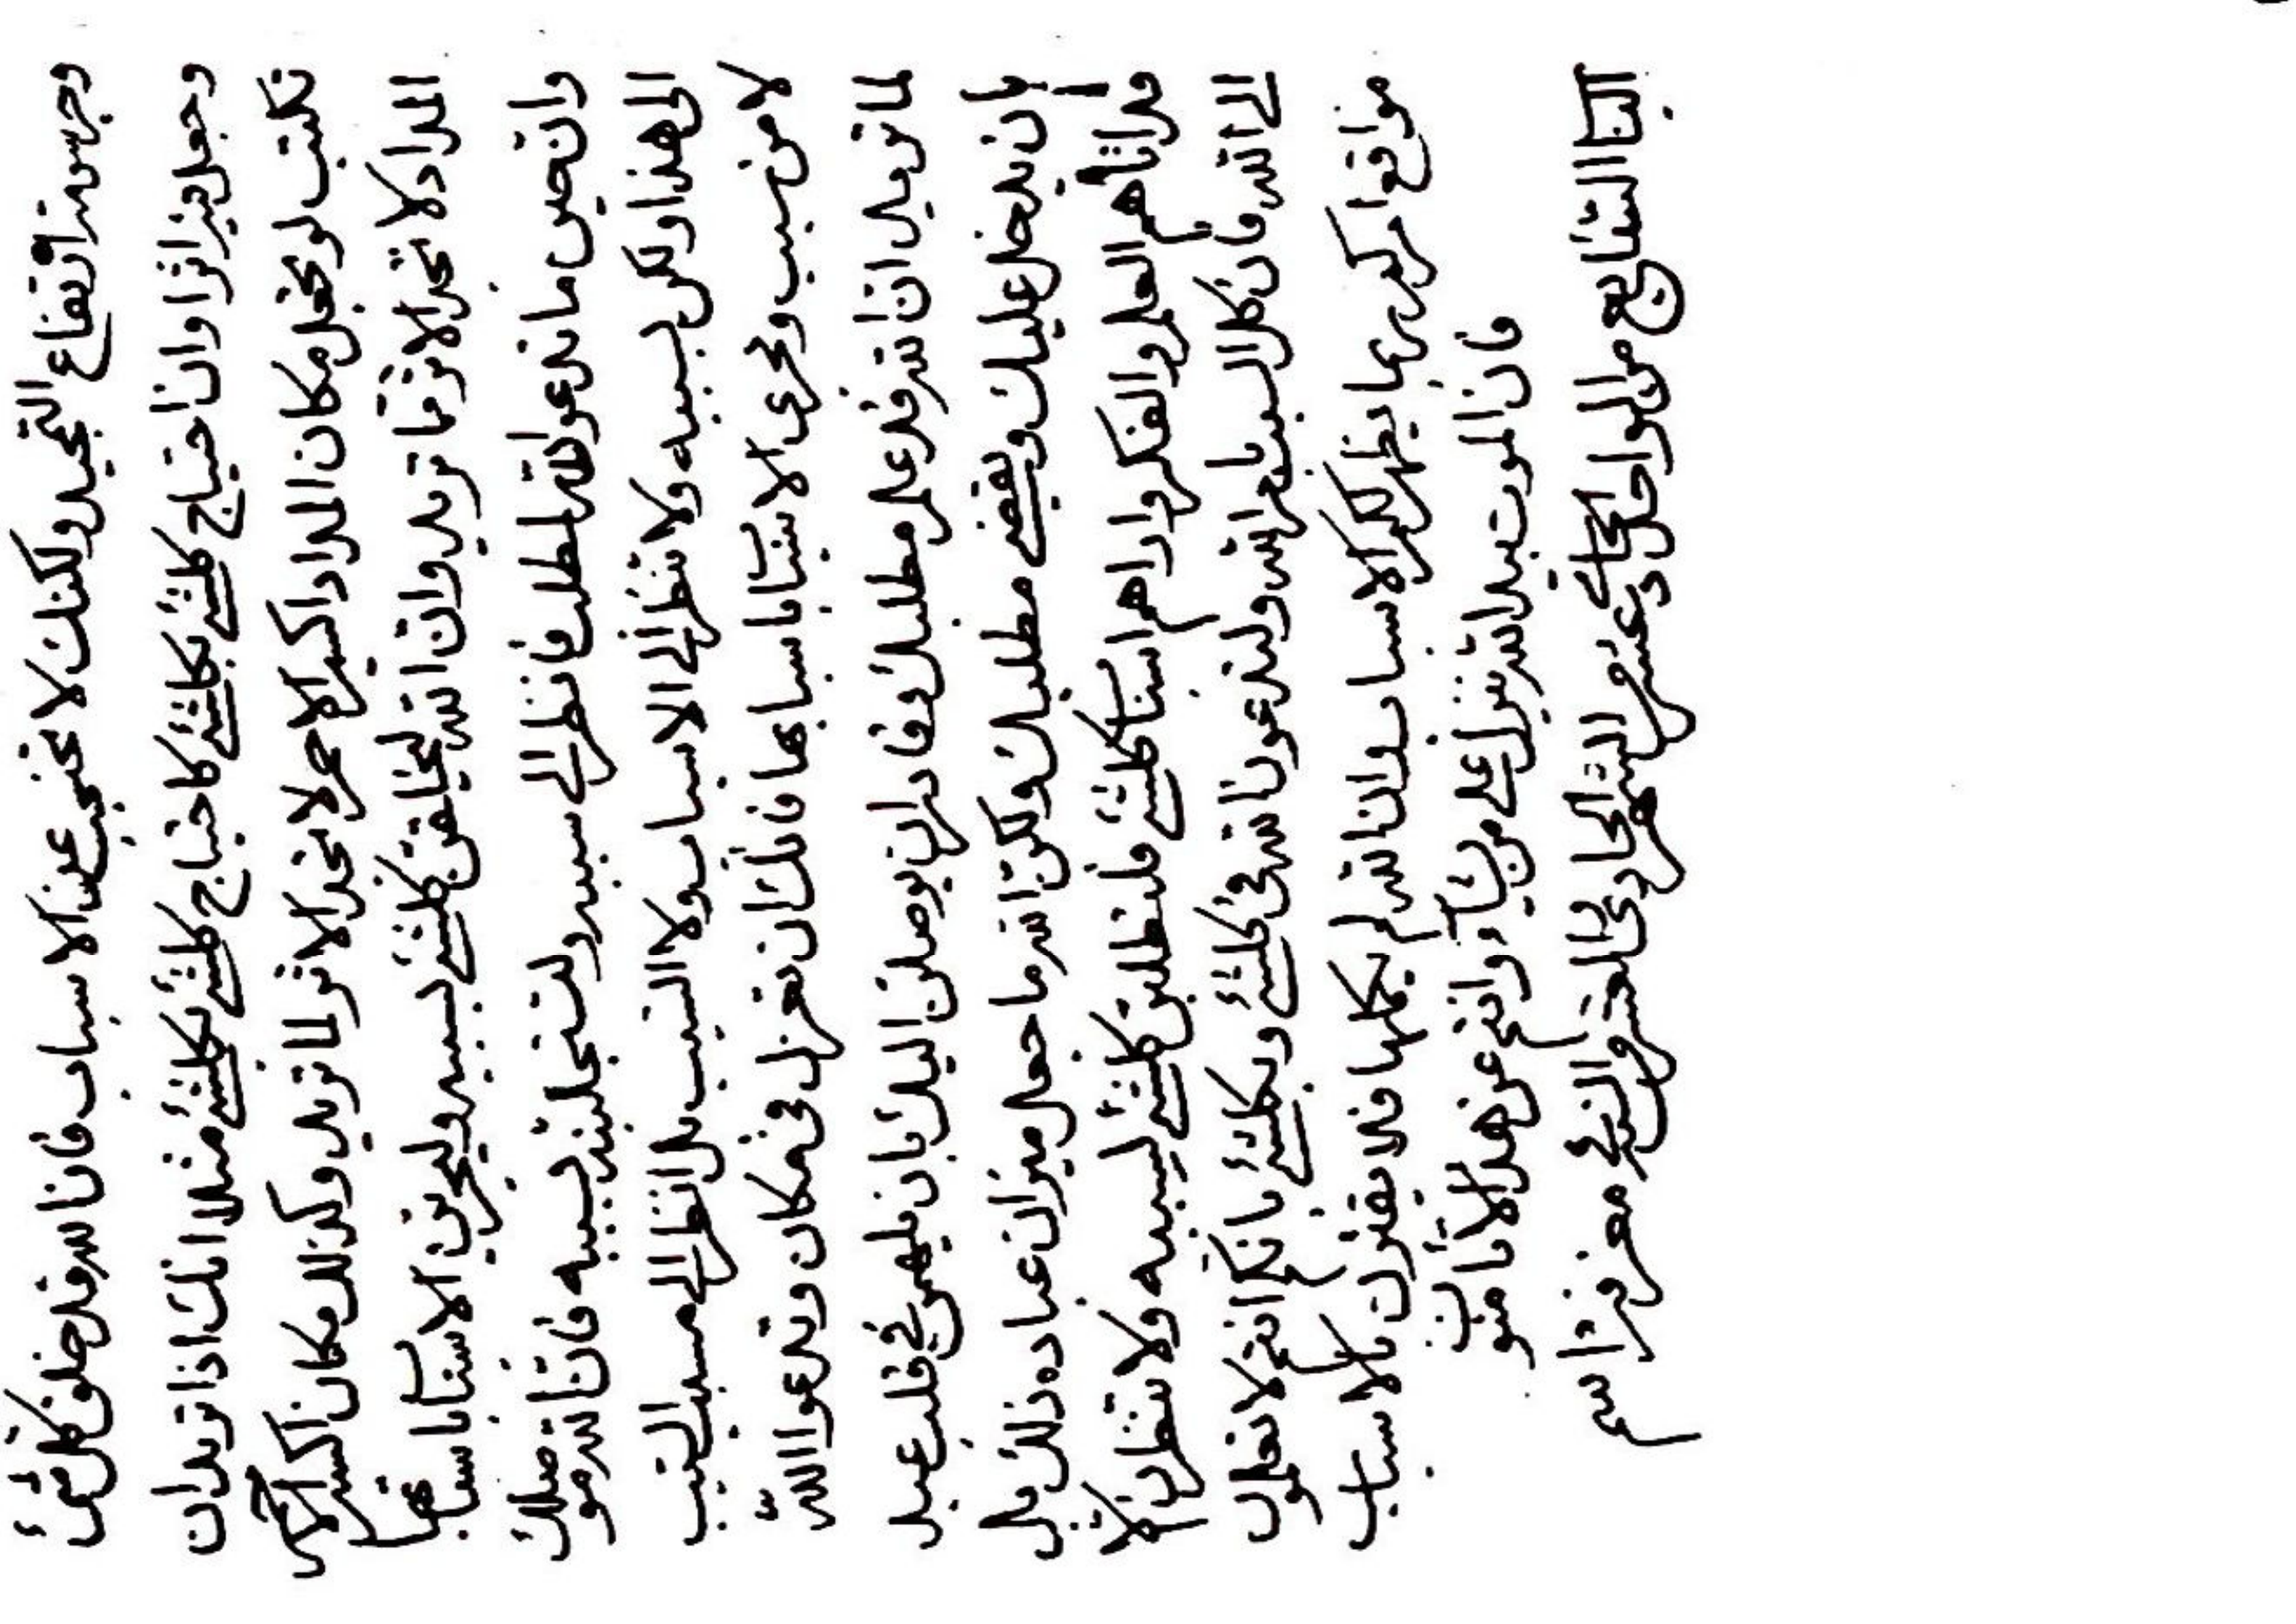 وجرس من ارتفاع التجيد ولكنك لا تحتجب عن الاسباب فان الله قد خلق كل شئ
وجعل فيه اثرا وان احتياج كلشئ بكلشئ كاحتياج كلشئ بكلشئ مثلا انك اذا تريد ان
تكتب لو تجعل مكان المداد اكسير الاحمر لا تجد الاثر لما تريد وكذلك مكان اكسير الاحمر
المداد لا تجد الاثر فما تريد وان الله ليخلقن كلشئ بسببه وليجرين الاشياء باسبابها
وان حين ما تدعو الله لمطلب فانظر الى سببه ولتستجلبنه بسببه فان الله موصلك
الى هذا ولكن بسببه ولا تنظر الى الاسباب ولا السبب بل انظر الى مسبب السبب
لا من سبب ومجرى الاشياء باسبابها فانك ان تعزل في مكان وتدعوا الله
لما تريد ان الله قد علم مطلبك وقادر ان يوصلن اليك بان يلهمن في قلب عبد
بان يدخل عليك ويقضى مطلبك ولكن الله ما جعل ميزان عباده ذلك بل
قد اتاهم العلم والفكر واراهم اسباب كلشئ فلتطلبن كلشئ بسببه ولا تنظرن الا
الى الله فان كل السبب بامر الله ولتدعون الله في كلشئ وبكلشئ بانكم انتم لا تعلمون
مواقع امركم ربما يظهر لكم الاسباب وان الله لم يكملها فلا تغترن بالاسباب
فان الموت بيد الله ينزل على من يشاء وانتم عن هذا لا تامنون
الباب السابع من الواحد الحادى عشر من الشهر الحادى العشر والنسئ معرفة اسم